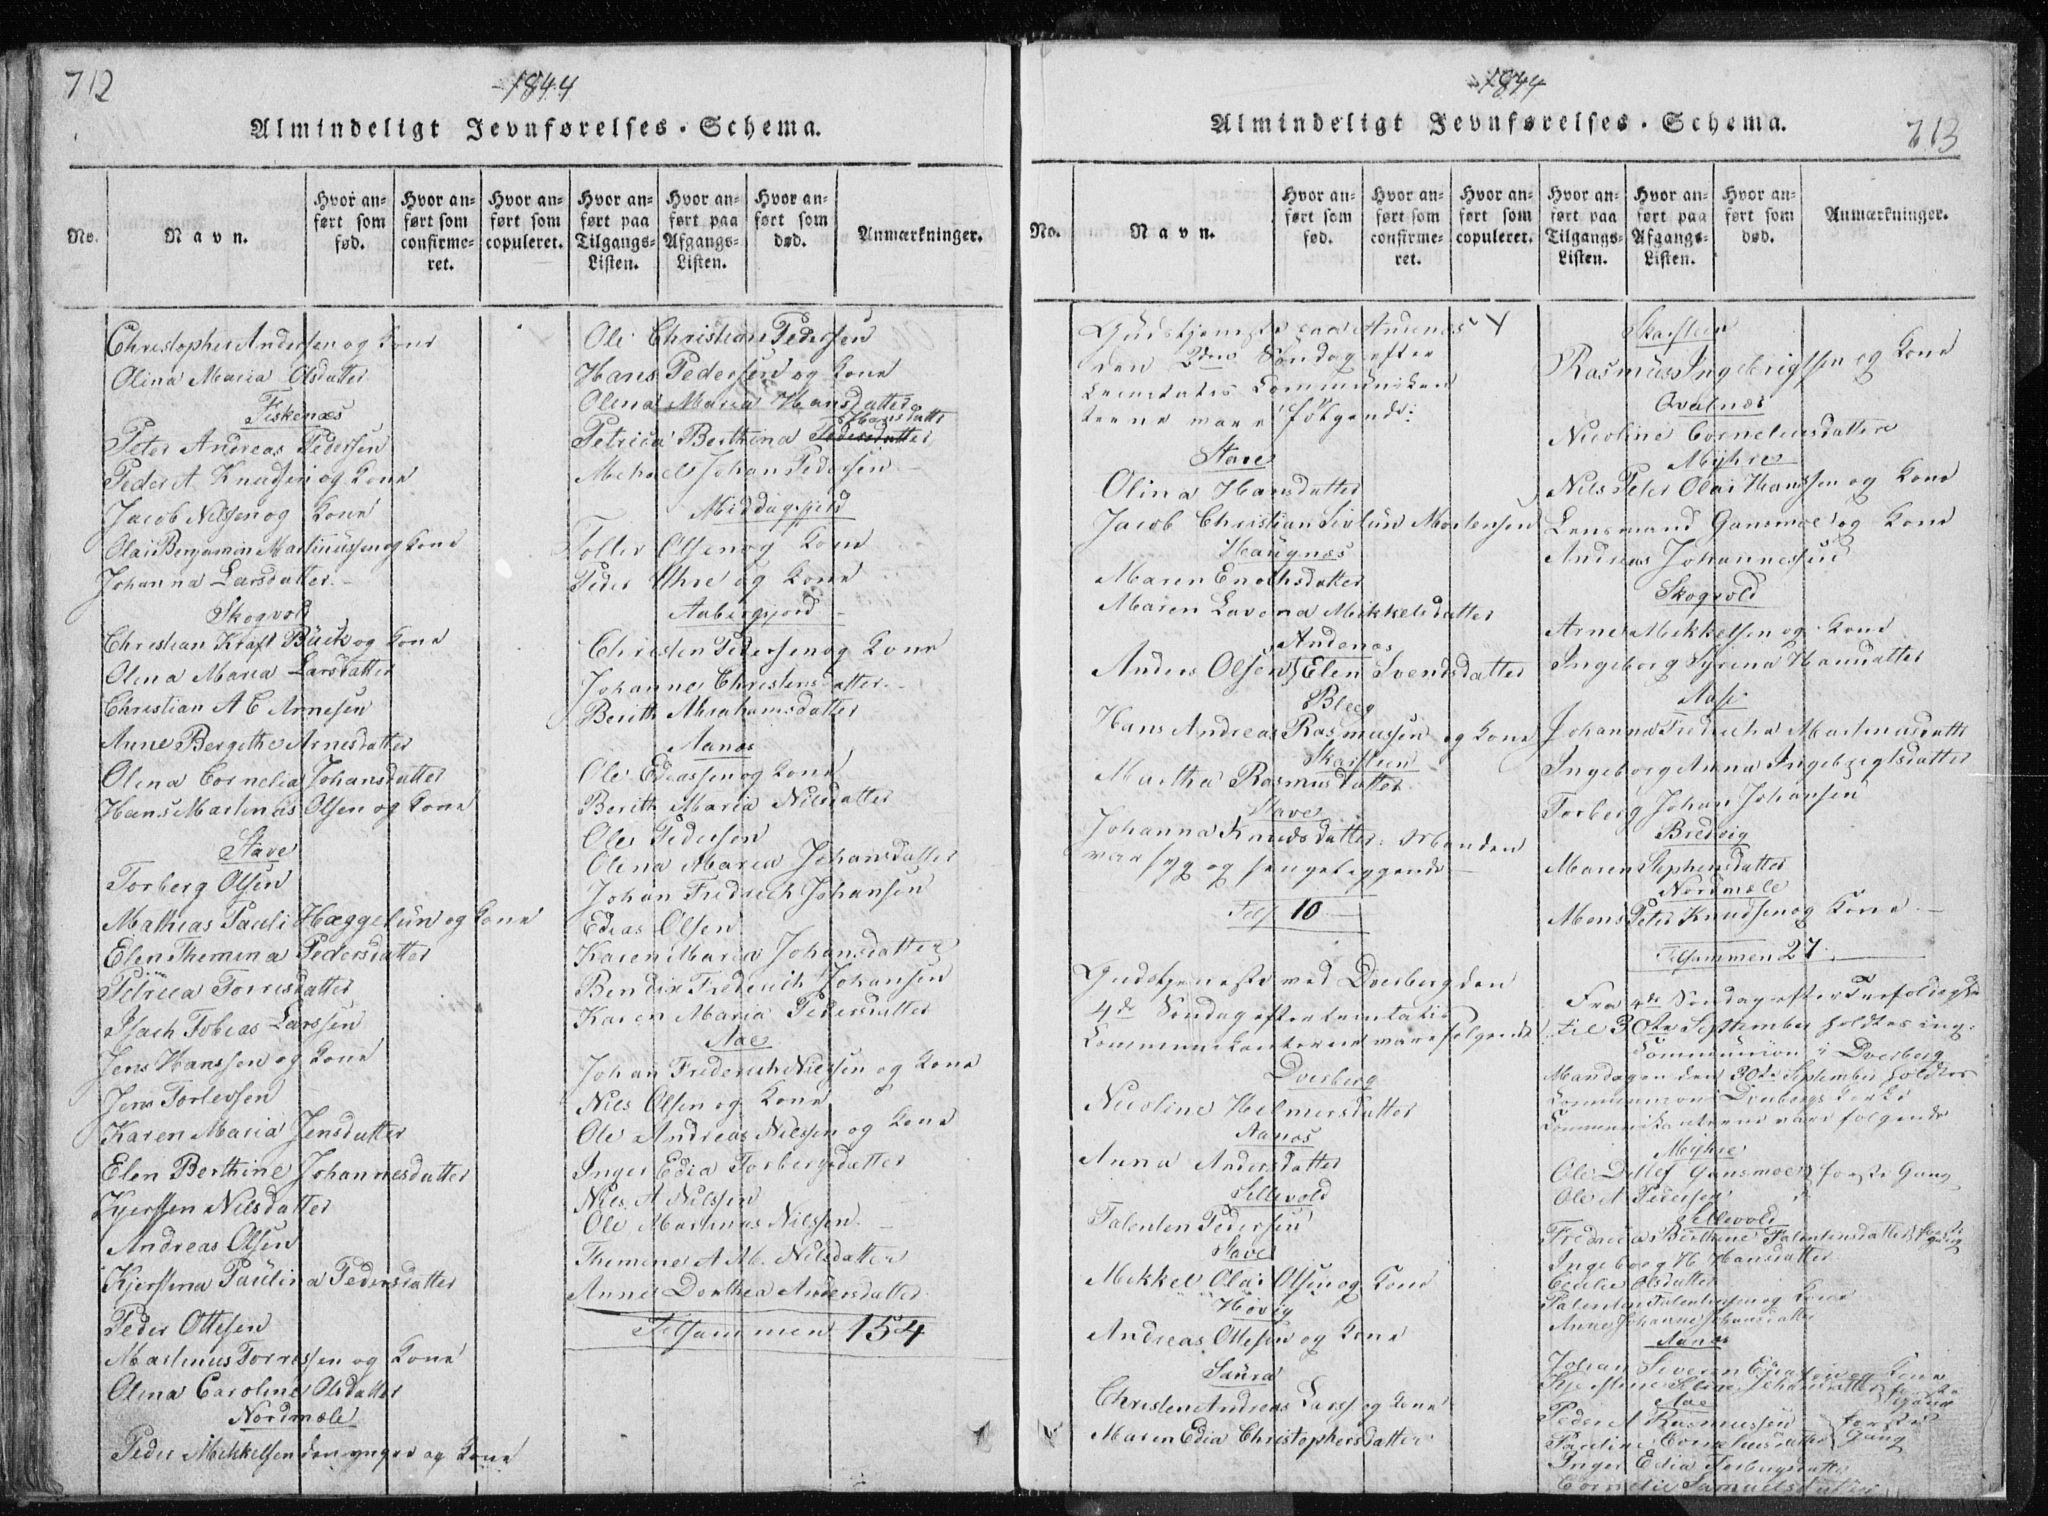 712
1844
Almindeligt Jevnførelses-Schema.
No.
Navn.
Hvor anført som fød.
Hvor anført som confirmeret.
Hvor anført som copuleret.
Hvor anført paa Tilgangs-Listen.
Hvor anført paa Afgangs-Listen.
Hvor anført som død.
Anmærkninger.
Christopher Andersen og Kone
Olina Maria Olsdatter
Fiskenæs
Peter Andreas Pedersen
Peder A. Knudsen og Kone
Jacob Nilsen og Kone
Olai Benjamin Martinussen og Kone
Johanna Larsdatter
Skogvold
Christian Kraft Bück og Kone
Olena Maria Larsdatter
Christian A C Arnesen
Anne Bergethe Arnesdatter
Olena Cornelia Johansdatter
Hans Martinas Olsen og Kone
Stave
Torberg Olsen
Mathias Pauli Hæggelun og Kone
Elen Themina Pedersdatter
Petrica Torresdatter
Isach Tobias Larssen
Jens Hanssen og Kone
Jens Torlevsen
Karen Maria Jensdatter
Elen Berthine Johannesdatter
Kjersten Nilsdatter
Andreas Olsen
Kjerstina Paulina Pedersdatter
Peder Ottesen
Martinus Torressen og Kone
Olena Caroline Olsdatter
Nordmæle
Peder Mekkelsen den yngre og Kone
Ole Christian Pedersen
Hans Pedersen og Kone
Olena Maria Hansdatter
Hansdatter
Petrica Berthina Pedersdatter
Mehael Johan Pedersen
Middagsfjeld
Toller Olsen og Kone
Peder Uhre og Kone
Aabergsjord
Christen Pedersen og Kone
Johanne Christensdatter
Berith Abrahamsdatter
Aanæs
Ole Ediassen og Kone
Berith Maria Nilsdatter
Ole Pedersen
Olena Maria Johansdatter
Johan Fredrich Johansen
Edias Olsen
Karen Maria Johansdatter
Bendix Frederich Johansen
Karen Maria Pedersdatter
Aae
Johan Frederich Nielsen og Kone
Nils Olsen og Kone
Ole Andreas Nilssen og Kone
Inger Edia Torbergsdatter
Nils A Nilssen
Ole Martinas Nilssen
Themine A. M. Nilsdatter
Anne Dorthea Andersdatter
Tilsammen 154
1844
Almindeligt Jevnførelses-Schema.
713
No.
Navn.
Hvor anført som fød.
Hvor anført som confirmeret.
Hvor anført som copuleret.
Hvor anført paa Tilgangs-Listen.
Hvor anført paa Afgangs-Listen.
Hvor anført som død.
Anmærkninger.
Gudstjeneste paa Andenæs
den 2den Søndag efter
Trinitatis Communikan
terne vare følgende:
Stave
Olina Hansdatter
Jacob Christian Sivlun Mortensen
Haugnæs
Maren Enochsdatter
Maren Lavena Mekkelsdatter
Andenæs
Anders Olsen Elen Svendsdatter
Bleeg
Hans Andreas Rasmussen og Kone
Skarsteen
Martha Rasmusdatter
Stave
Johanna Knudsdatter
var syg og sengeliggende
Tils 10
Gudstjeneste ved Dverberg den
4de Søndag efter Trinitatis
Communikanterne vare følgende
Dverberg
Nicoline Helmersdatter
Aanæs
Anna Andersdatter
Sellevold
Talenten Pedersen
Stave
Mekkel Olai Olsen og Kone
Høvig
Andreas Ottesen og Kone
Saura
Christen Andreas Larss og Kone
Maren Edia Christophersdatter
Skarsteen
Rasmus Ingebrigtsen og Kone
Qvalnæs
Nicoline Corneliusdatter
Myhre
Nils Peter Olai Hanssen og Kone
Lensmand Gansmoe og Kone
Andreas Johannessen
Skogvold
Arne Mekkelsen og Kone
Ingeborg Syrina Hansdatter
Aase
Johanna Fredricha Martinusdatter
Ingeborg Anna Ingebrigtsdatter
Torberg Johan Johansen
Bredvig
Maren Stephensdatter
Nordmæle
Mons Peter Knudsen og Kone
Tilsammen 27
Fra 4de Søndag efter Trefoldighed
til 30te September holdtes ing.
Communion i Dverberg
Mandagen den 30te September holdtes
Communion i Dverbergs Kirke
Communikanterne vare følgende
Myhre
Ole Detlef Gansmoe første Gang
Ole A Pedersen
Sellevold
Fredrica Berthine Talentensdatter første Gang
Ingeborg H Hansdatter
Cecilie Olsdatter
Talenten Talentensen og Kone
Anne Johanne Johansdatter
Aanæs
Johan Severin Ediassen og Kone
første Gang
Aae
Peder A Rasmussen
Pauline Corneliusdatter første Gang
Inger Edia Torbergsdatter
Cornelie Samuelsdatter